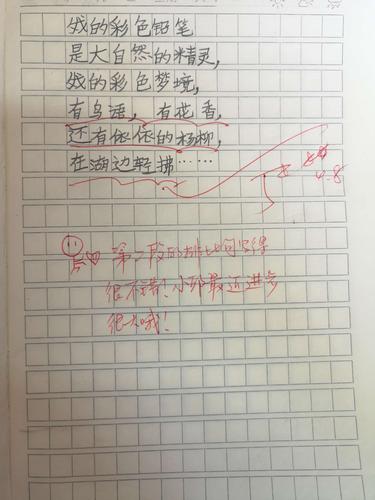 我的彩色铅笔
是大自然的精灵,
我的彩色梦境,
有鸟语,有花香,
还有依依的杨柳,
在湖边轻拂……
4.8
第一段的排比句写得
很不错!小邹最近进步
很大哦!